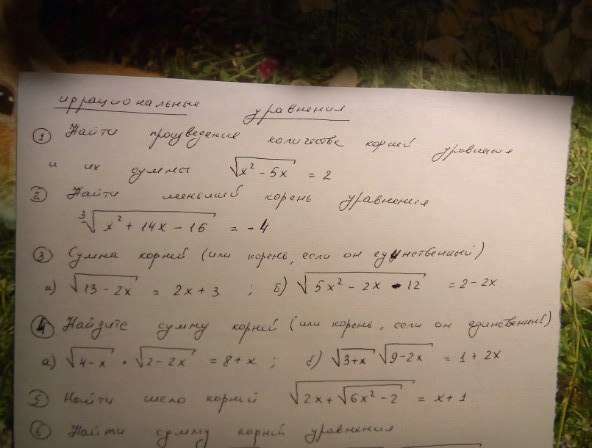 иррациональные уравнения
① Найти произведение количества корней уравнения
и их суммы √(x² - 5x) = 2
② Найти меньший корень уравнения
³√(x² + 14x - 16) = -4
③ Сумма корней (или корень, если он единственный)
а) √(13 - 2x) = 2x + 3 ; б) √(5x² - 2x - 12) = 2 - 2x
④ Найдите сумму корней (или корень, если он единственный)
а) √(4 - x) · √(2 - 2x) = 8 + x ; б) √(3 + x) √(9 - 2x) = 1 + 2x
⑤ Найти число корней √(2x + √(6x² - 2)) = x + 1
⑥ Найти сумму корней уравнения